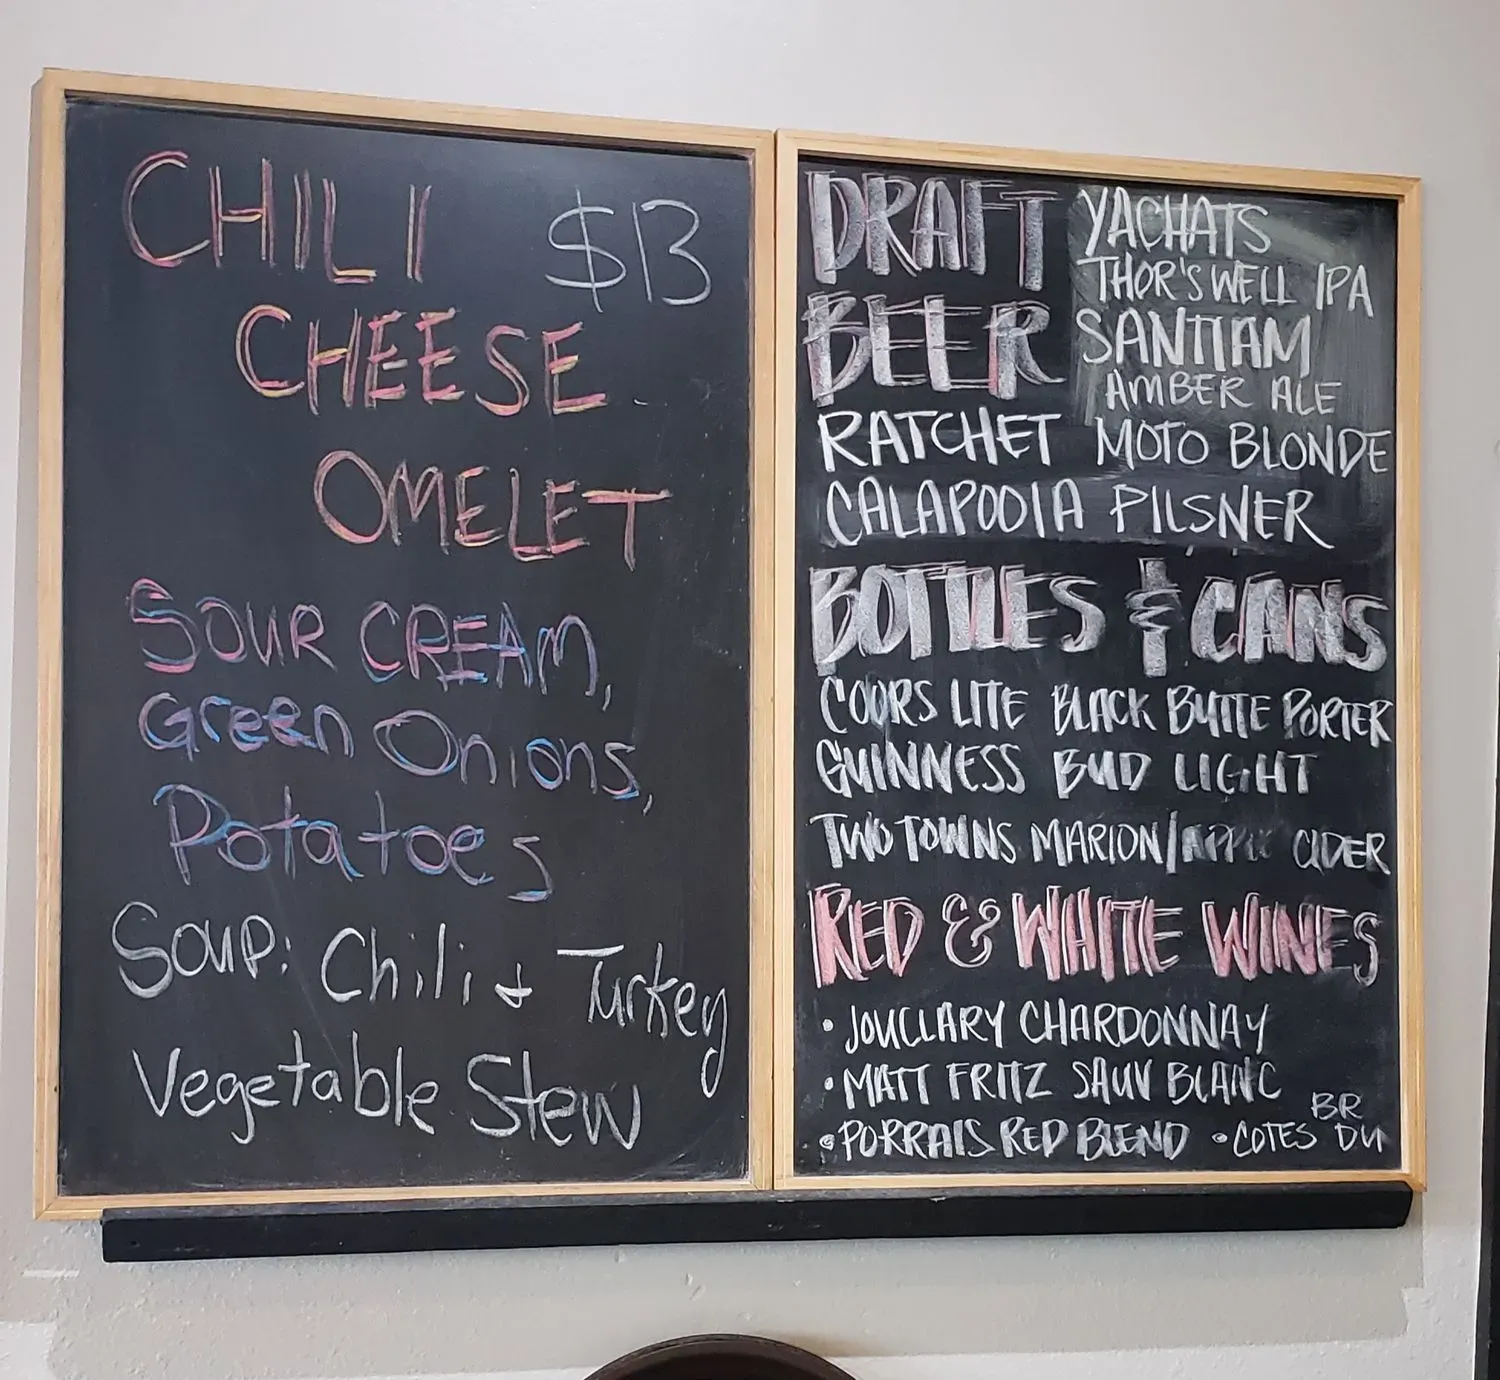 CHILI $13
CHEESE
OMELET
SOUR CREAM,
Green Onions,
Potatoes
Soup: Chili & Turkey
Vegetable Stew
DRAFT
BEER
YACHATS
THOR'S WELL IPA
SANTIAM
AMBER ALE
RATCHET MOTO BLONDE
CALAPOOIA PILSNER
BOTTLES & CANS
COORS LITE BLACK BUTTE PORTER
GUINNESS BUD LIGHT
TWO TOWNS MARION/APPLE CIDER
RED & WHITE WINES
• JOUCLARY CHARDONNAY
• MATT FRITZ SAUV BLANC
• PORRAIS RED BLEND • COTES DU
BR